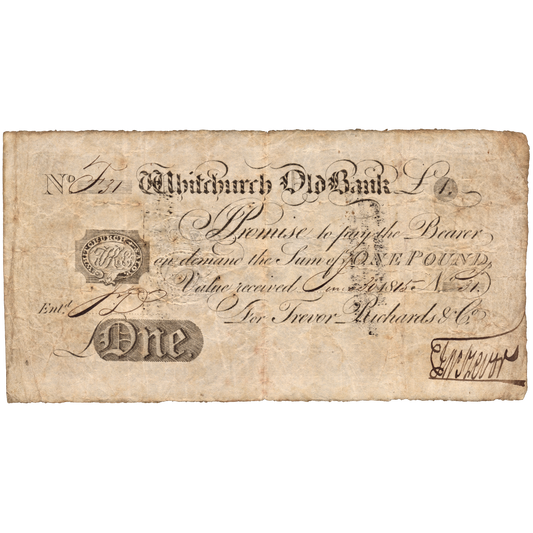 No. F31 Whitchurch Old Bank £1
I Promise to pay the Bearer
on demand the Sum of ONE POUND
Value received 1815 No. 31
Entd.
For Trevor, Richards & Co.
One